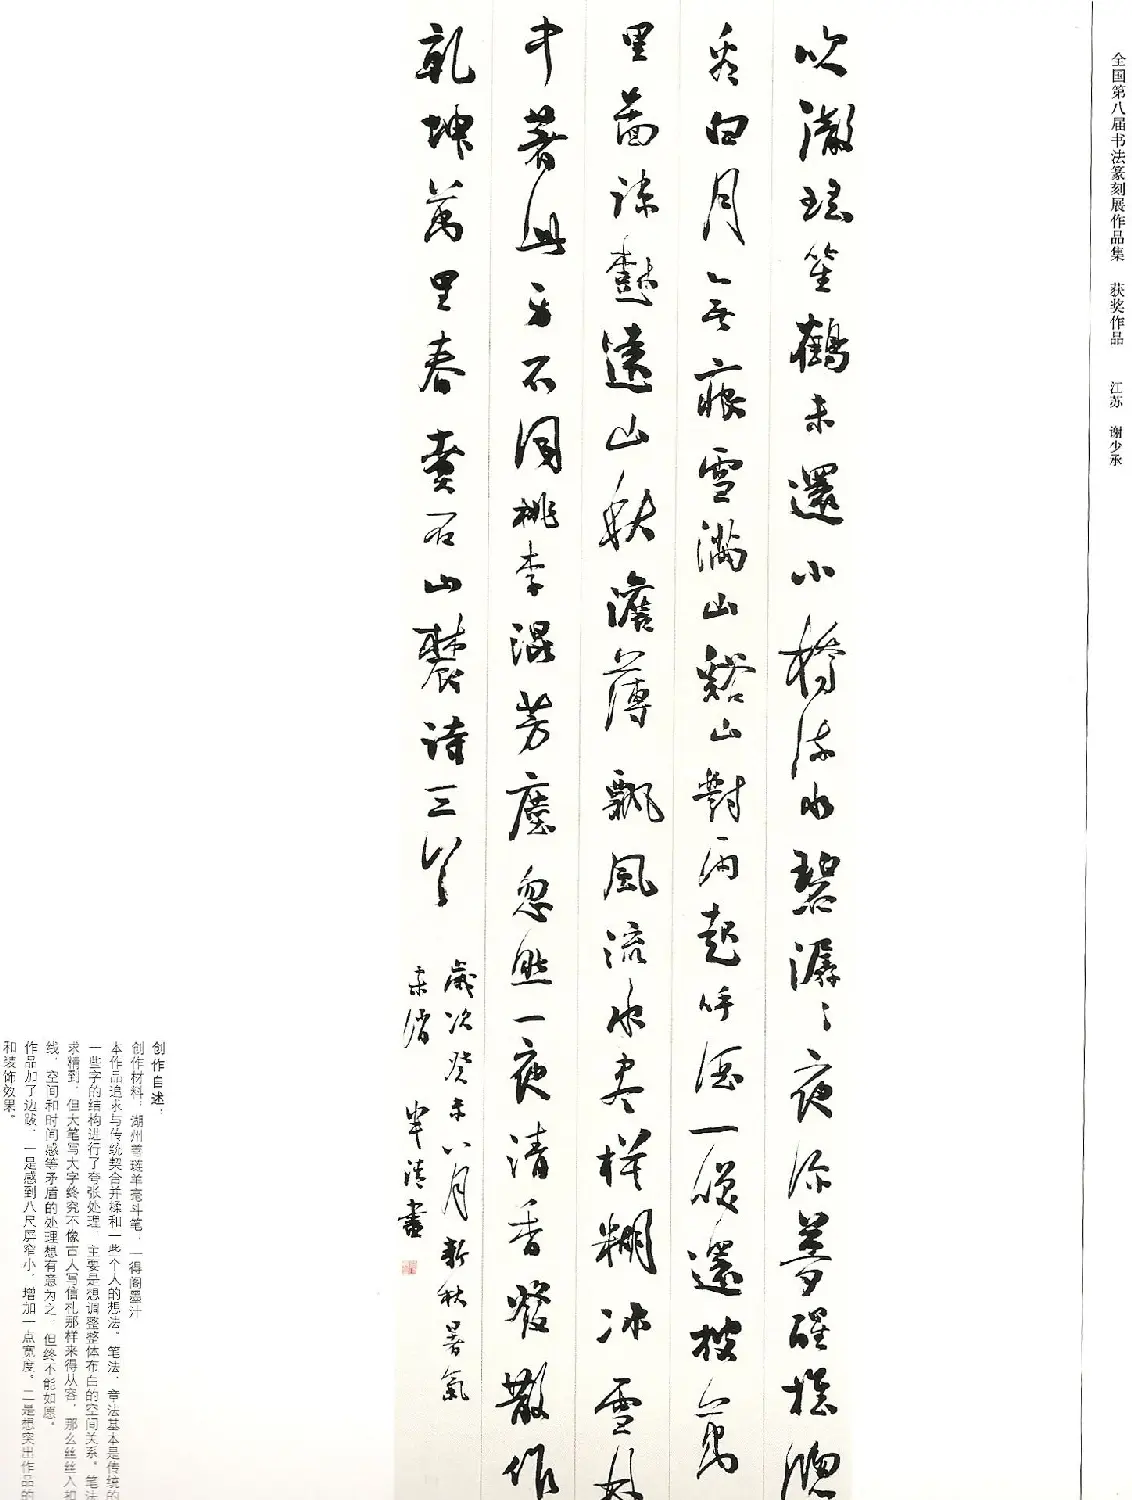 全国第八届书法篆刻展作品集 获奖作品 江苏 谢少承
吹澈瑶笙鶴未還小橋流水碧潺〻夜深夢醒推牕
看白月無痕雪滿山谿山對雨起呼酒一硯還披萬
里啚疎樹遠山秋澹薄飄風流水尽模糊冰雪林
中著此身不同桃李混芳塵忽然一夜清香發散作
乾坤萬里春煮石山農诗三首
歲次癸未八月新秋暑氣
未消 半清書
创作自述:
创作材料:湖州善琏羊毫斗笔,一得阁墨汁
本作品追求与传统契合并糅和一些个人的想法。笔法、章法基本是传统的
一些字的结构进行了夸张处理,主要是想调整整体布白的空间关系。笔法
求精到,但大笔写大字终究不像古人写信札那样来得从容,那么丝丝入扣
线,空间和时间感等矛盾的处理想有意为之,但终不能如愿。
作品加了边跋,一是感到八尺屏窄小,增加一点宽度。二是想突出作品的
和装饰效果。